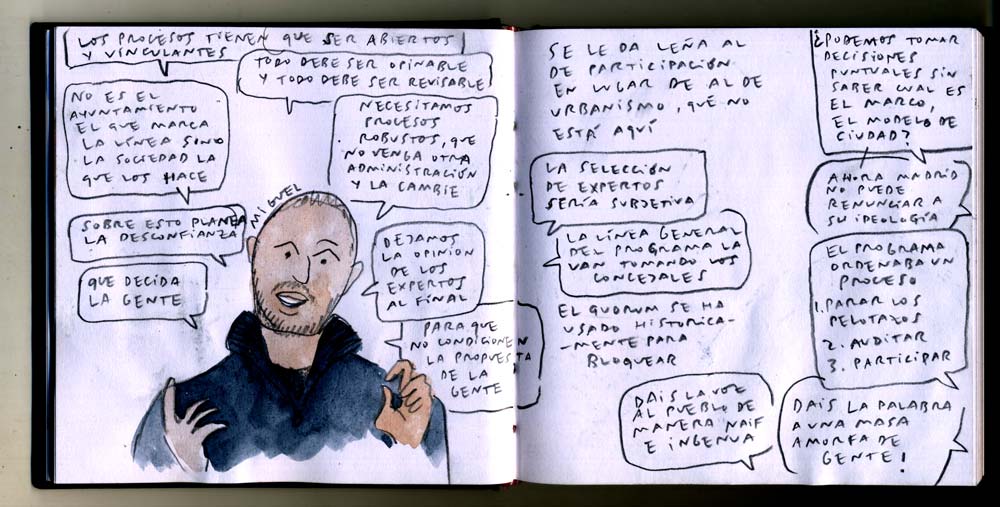 LOS PROCESOS TIENEN QUE SER ABIERTOS
Y VINCULANTES
TODO DEBE SER OPINABLE
Y TODO DEBE SER REVISABLE
NO ES EL
AYUNTAMIENTO
EL QUE MARCA
LA LÍNEA SINO
LA SOCIEDAD LA
QUE LOS HACE
NECESITAMOS
PROCESOS
ROBUSTOS, QUE
NO VENGA OTRA
ADMINISTRACIÓN
Y LA CAMBIE
MIGUEL
SOBRE ESTO PLANEA
LA DESCONFIANZA
QUE DECIDA
LA GENTE
DEJAMOS
LA OPINIÓN
DE LOS
EXPERTOS
AL FINAL
PARA QUE
NO CONDICIONEN
LA PROPUESTA
DE LA
GENTE
SE LE DA LEÑA AL
DE PARTICIPACIÓN
EN LUGAR DE AL DE
URBANISMO, QUE NO
ESTÁ AQUÍ
LA SELECCIÓN
DE EXPERTOS
SERÍA SUBJETIVA
LA LÍNEA GENERAL
DEL PROGRAMA LA
VAN TOMANDO LOS
CONCEJALES
EL QUORUM SE HA
USADO HISTORICA-
-MENTE PARA
BLOQUEAR
DAIS LA VOZ
AL PUEBLO DE
MANERA NAIF
E INGENUA
¿PODEMOS TOMAR
DECISIONES
PUNTUALES SIN
SABER CUAL ES
EL MARCO,
EL MODELO DE
CIUDAD?
AHORA MADRID
NO PUEDE
RENUNCIAR A
SU IDEOLOGÍA
EL PROGRAMA
ORDENABA UN
PROCESO
1. PARAR LOS
PELOTAZOS
2. AUDITAR
3. PARTICIPAR
DAIS LA PALABRA
A UNA MASA
AMORFA DE
GENTE!